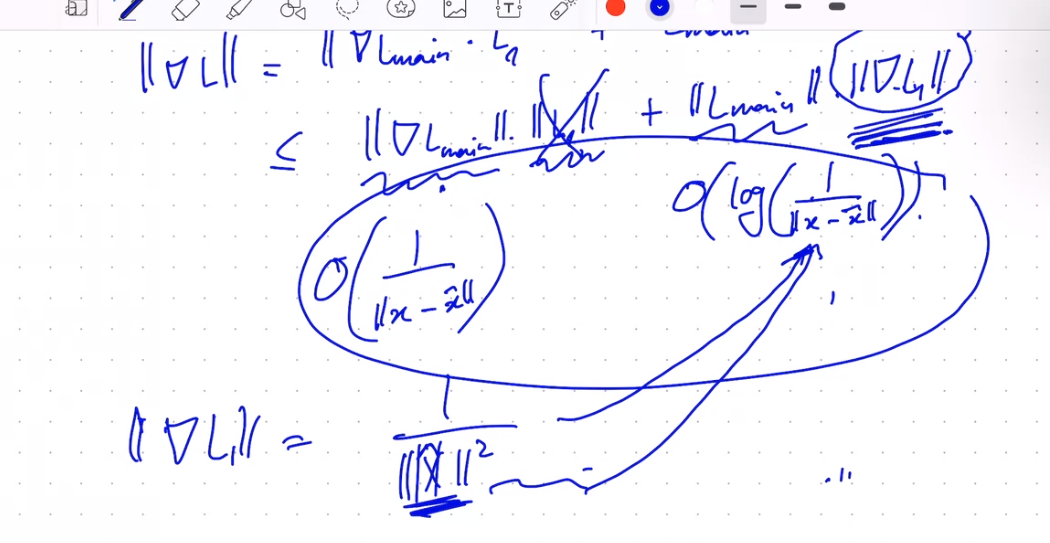 ‖∇L‖ = ‖∇L_main · L_1 + L_main
≤ ‖∇L_main‖ · ‖L_1‖ + ‖L_main‖ · ‖∇L_1‖
O(1/‖x − x̂‖) O(log(1/‖x − x̂‖))
‖∇L_1‖ = 1/‖X‖²